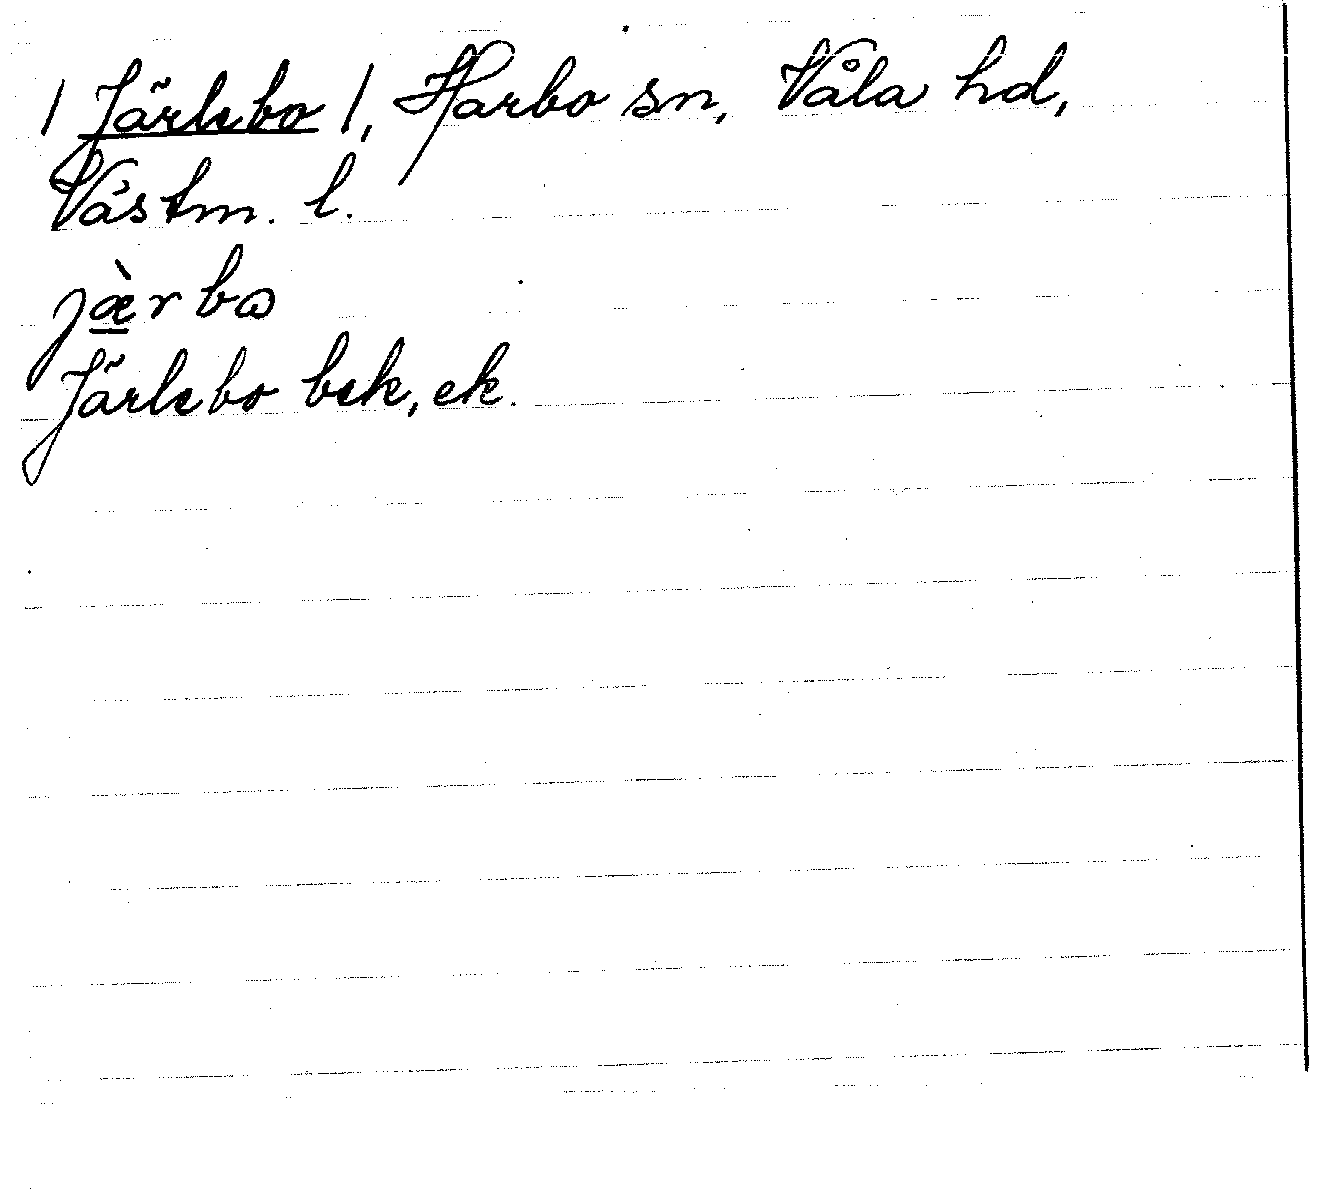 / Järlebo /, Harbo sn, Våla hd,
Västm. l.
jæ̀rbɷ
Järlebo bek, ek.